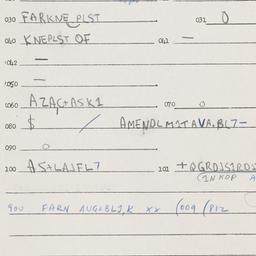 030 FARKNE PLST 031 0
040 KNEPLST OF 041 —
042 —
050 —
060 AZAG+ASK1 070 0
080 $ / AMENDLM1TAVA.BL7-
090 0
100 AS+LAJFL7 101 +QGRDJS1RDJS
(IN KOP A
900 FARN AUG+BLJ,K xx (009 (P12